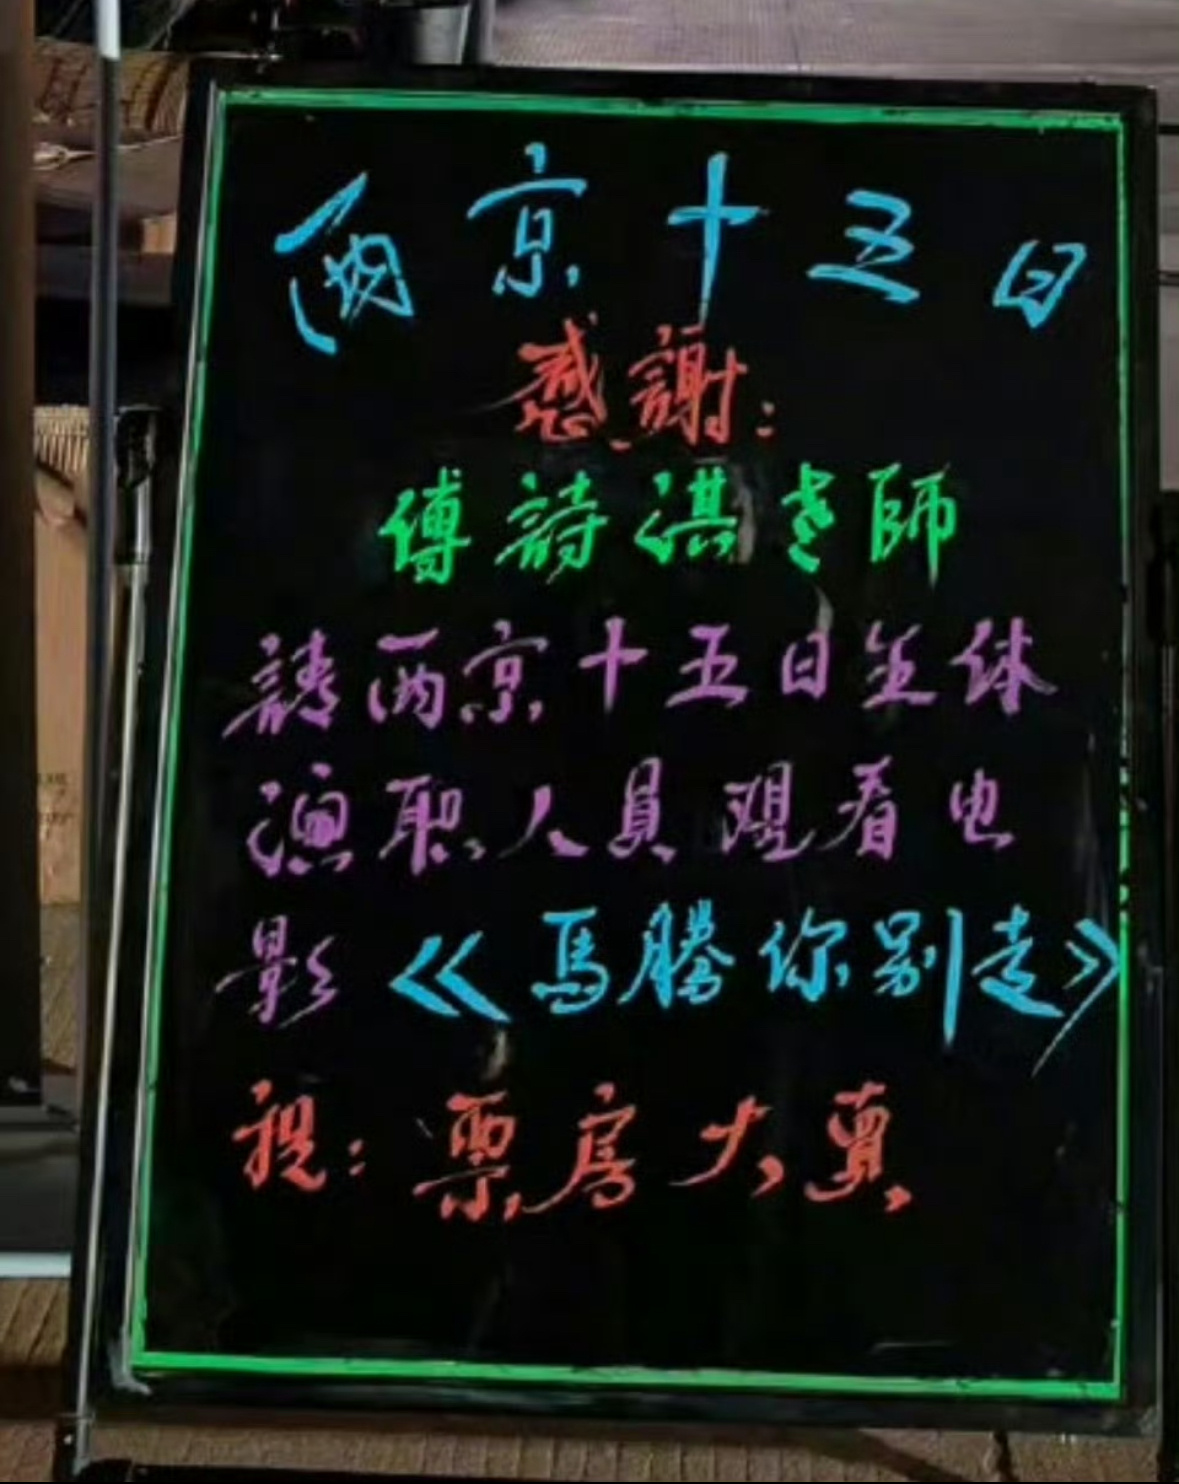 两京十五日
感謝：
傅詩淇老師
請两京十五日全体
演职人員观看电
影《馬騰你别走》
祝：票房大賣